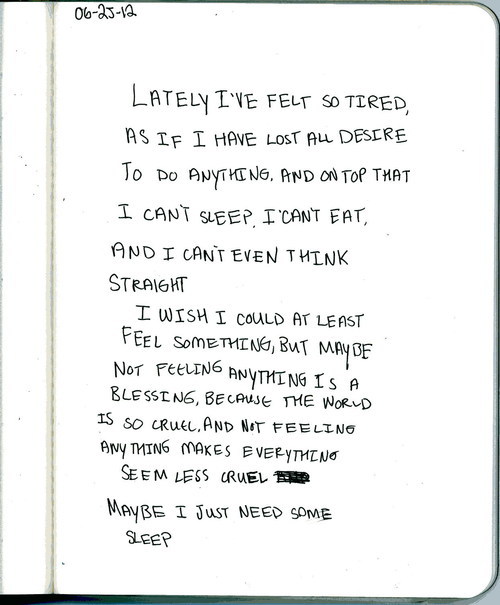 06-25-12
LATELY I'VE FELT SO TIRED,
AS IF I HAVE LOST ALL DESIRE
TO DO ANYTHING. AND ON TOP THAT
I CAN'T SLEEP, I CAN'T EAT,
AND I CAN'T EVEN THINK
STRAIGHT
I WISH I COULD AT LEAST
FEEL SOMETHING, BUT MAYBE
NOT FEELING ANYTHING IS A
BLESSING, BECAUSE THE WORLD
IS SO CRUEL, AND NOT FEELING
ANYTHING MAKES EVERYTHING
SEEM LESS CRUEL
MAYBE I JUST NEED SOME
SLEEP